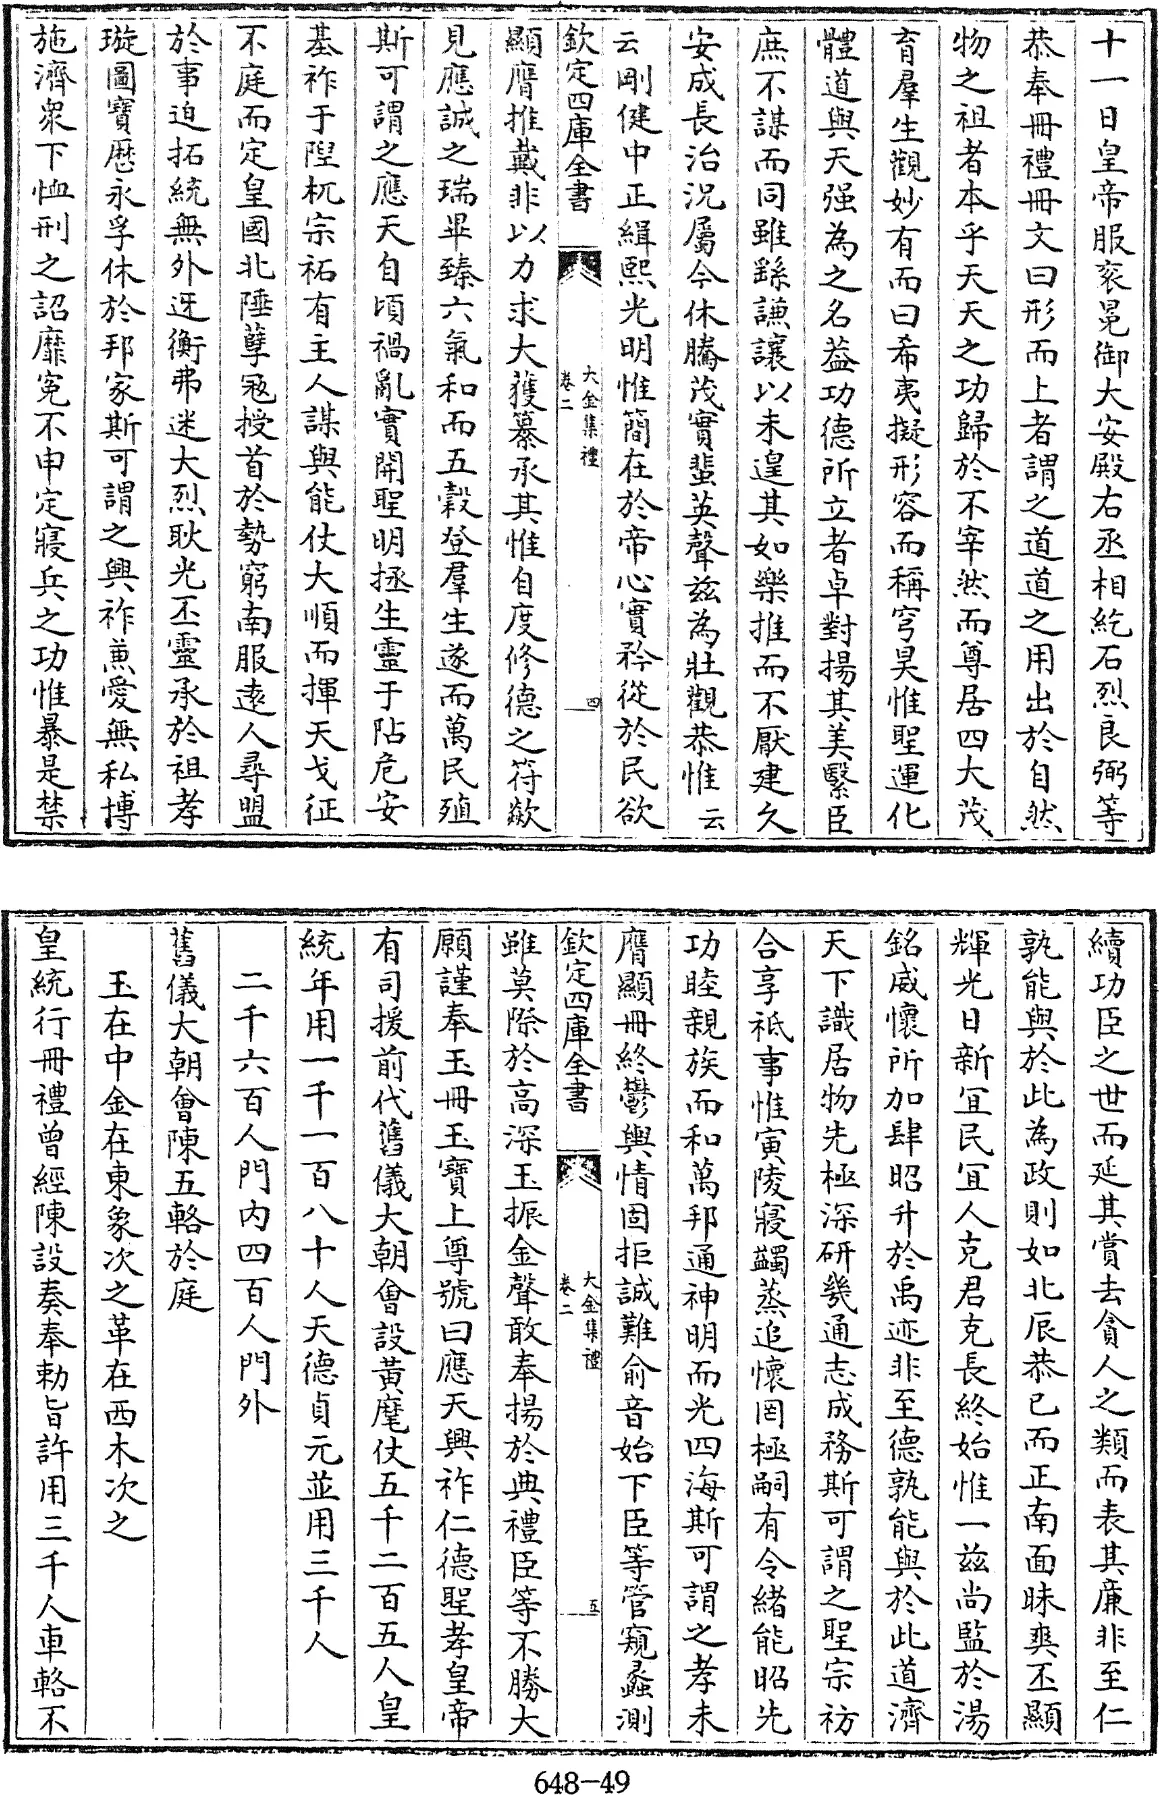 十一日皇帝服衮冕御大安殿右丞相紇石烈良弼等
恭奉冊禮冊文曰形而上者謂之道道之用出於自然
物之祖者本乎天天之功歸於不宰然而尊居四大茂
育羣生觀妙有而曰希夷擬形容而稱穹昊惟聖運化
體道與天强為之名益功德所立者卓對揚其美繄臣
庶不謀而同雖繇謙讓以未遑其如樂推而不厭建久
安成長治況屬今休騰茂實蜚英聲兹為壯觀恭惟云
云剛健中正緝熙光明惟簡在於帝心實矜從於民欲
欽定四庫全書
大金集禮
卷二
四
顯膺推戴非以力求大獲纂承其惟自度修德之符歘
見應誠之瑞畢臻六氣和而五穀登羣生遂而萬民殖
斯可謂之應天自頃禍亂實開聖明拯生靈于阽危安
基祚于隉杌宗祏有主人謀與能仗大順而揮天戈征
不庭而定皇國北陲孽冦授首於勢窮南服逺人尋盟
於事迫拓統無外迓衡弗迷大烈耿光丕靈承於祖孝
璇圖寶厯永孚休於邦家斯可謂之興祚兼愛無私博
施濟衆下恤刑之詔靡寃不申定寢兵之功惟暴是禁
續功臣之世而延其賞去貪人之類而表其廉非至仁
孰能與於此為政則如北辰恭已而正南面昧爽丕顯
輝光日新宜民宜人克君克長終始惟一兹尚監於湯
銘威懷所加肆昭升於禹迹非至德孰能與於此道濟
天下識居物先極深研幾通志成務斯可謂之聖宗祊
合享祇事惟寅陵寢蠲蒸追懷罔極嗣有令緒能昭先
功睦親族而和萬邦通神明而光四海斯可謂之孝未
膺顯冊終鬱輿情固拒誠難俞音始下臣等管窺蠡測
欽定四庫全書
大金集禮
卷二
五
雖莫際於高深玉振金聲敢奉揚於典禮臣等不勝大
願謹奉玉冊玉寶上尊號曰應天興祚仁德聖孝皇帝
有司援前代舊儀大朝會設黃麾仗五千二百五人皇
統年用一千一百八十人天德貞元並用三千人
二千六百人門内四百人門外
舊儀大朝會陳五輅於庭
玉在中金在東象次之革在西木次之
皇統行冊禮曾經陳設奏奉勅旨許用三千人車輅不
648-49